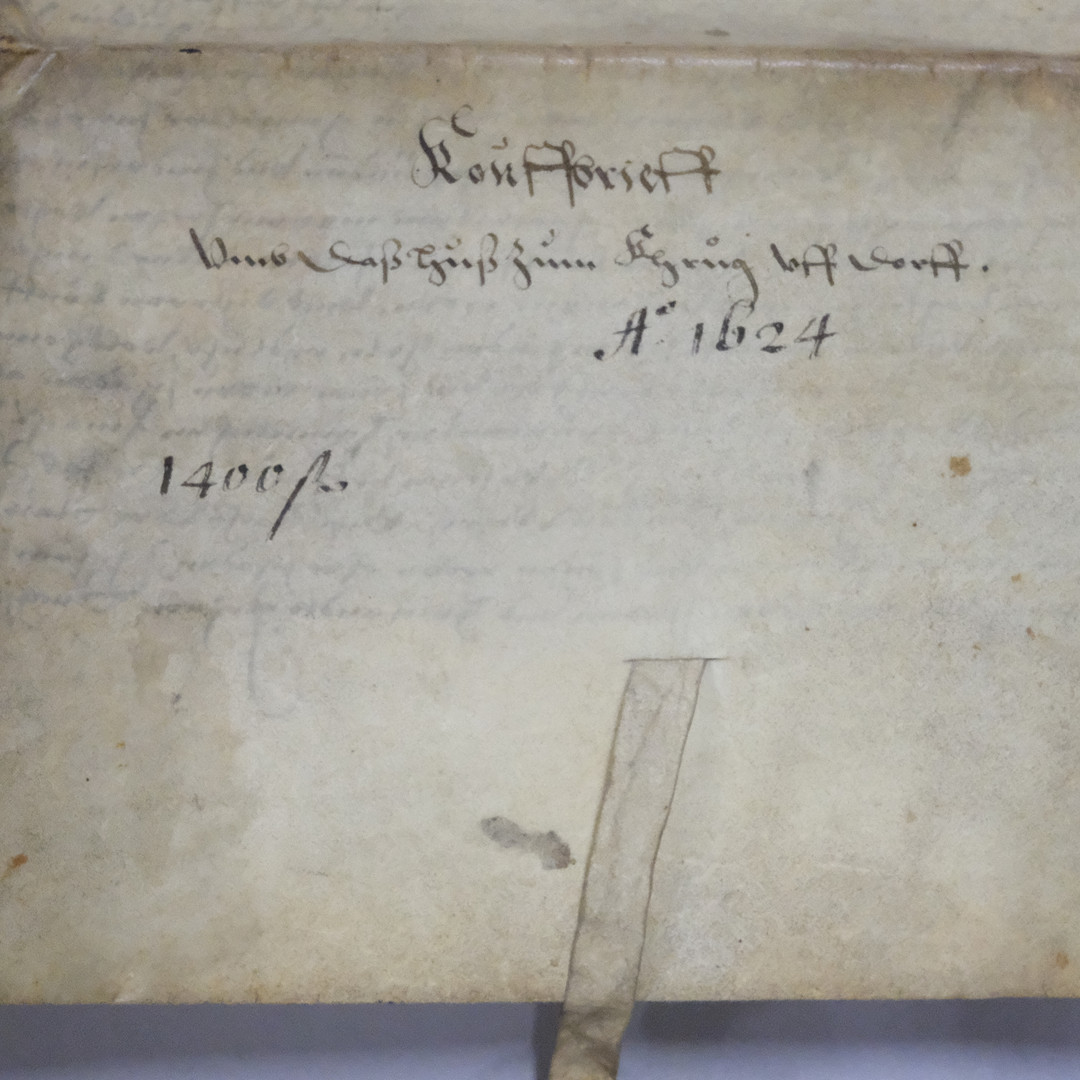 Kouffbrieff
Vmb daß huß zum Khrůg vff dorff.
Aº 1624
1400 fl.